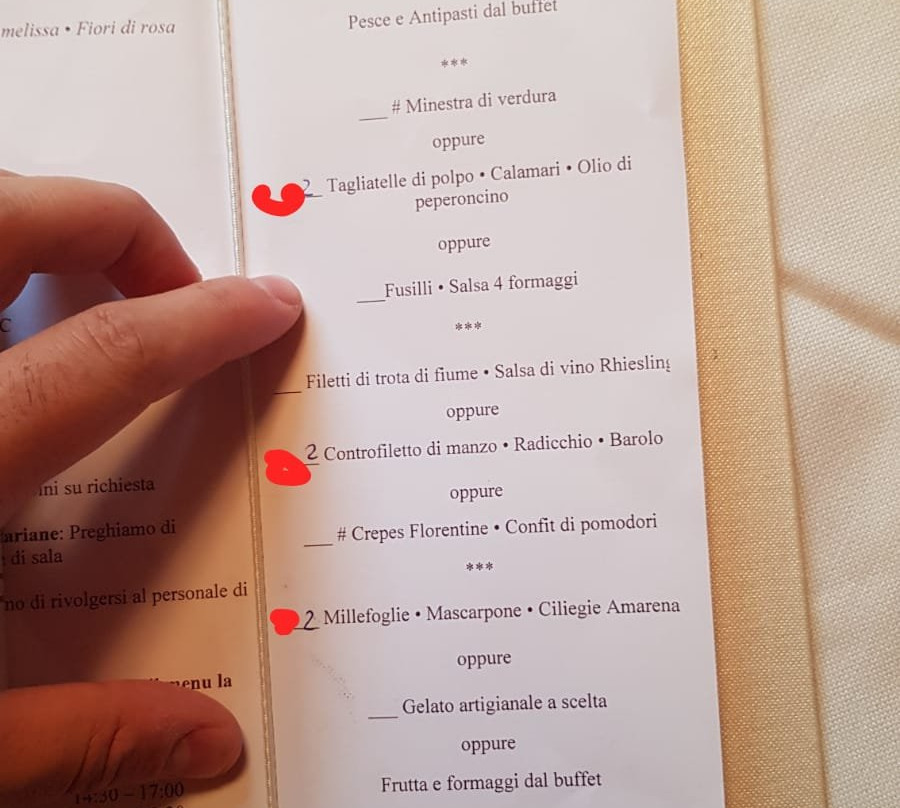 melissa • Fiori di rosa
su richiesta
Preghiamo di
di sala
di rivolgersi al personale di
la
– 17:00
Pesce e Antipasti dal buffet
***
___ # Minestra di verdura
oppure
2 Tagliatelle di polpo • Calamari • Olio di
peperoncino
oppure
___Fusilli • Salsa 4 formaggi
***
___ Filetti di trota di fiume • Salsa di vino Rhiesling
oppure
2 Controfiletto di manzo • Radicchio • Barolo
oppure
___ # Crepes Florentine • Confit di pomodori
***
2 Millefoglie • Mascarpone • Ciliegie Amarena
oppure
___ Gelato artigianale a scelta
oppure
Frutta e formaggi dal buffet